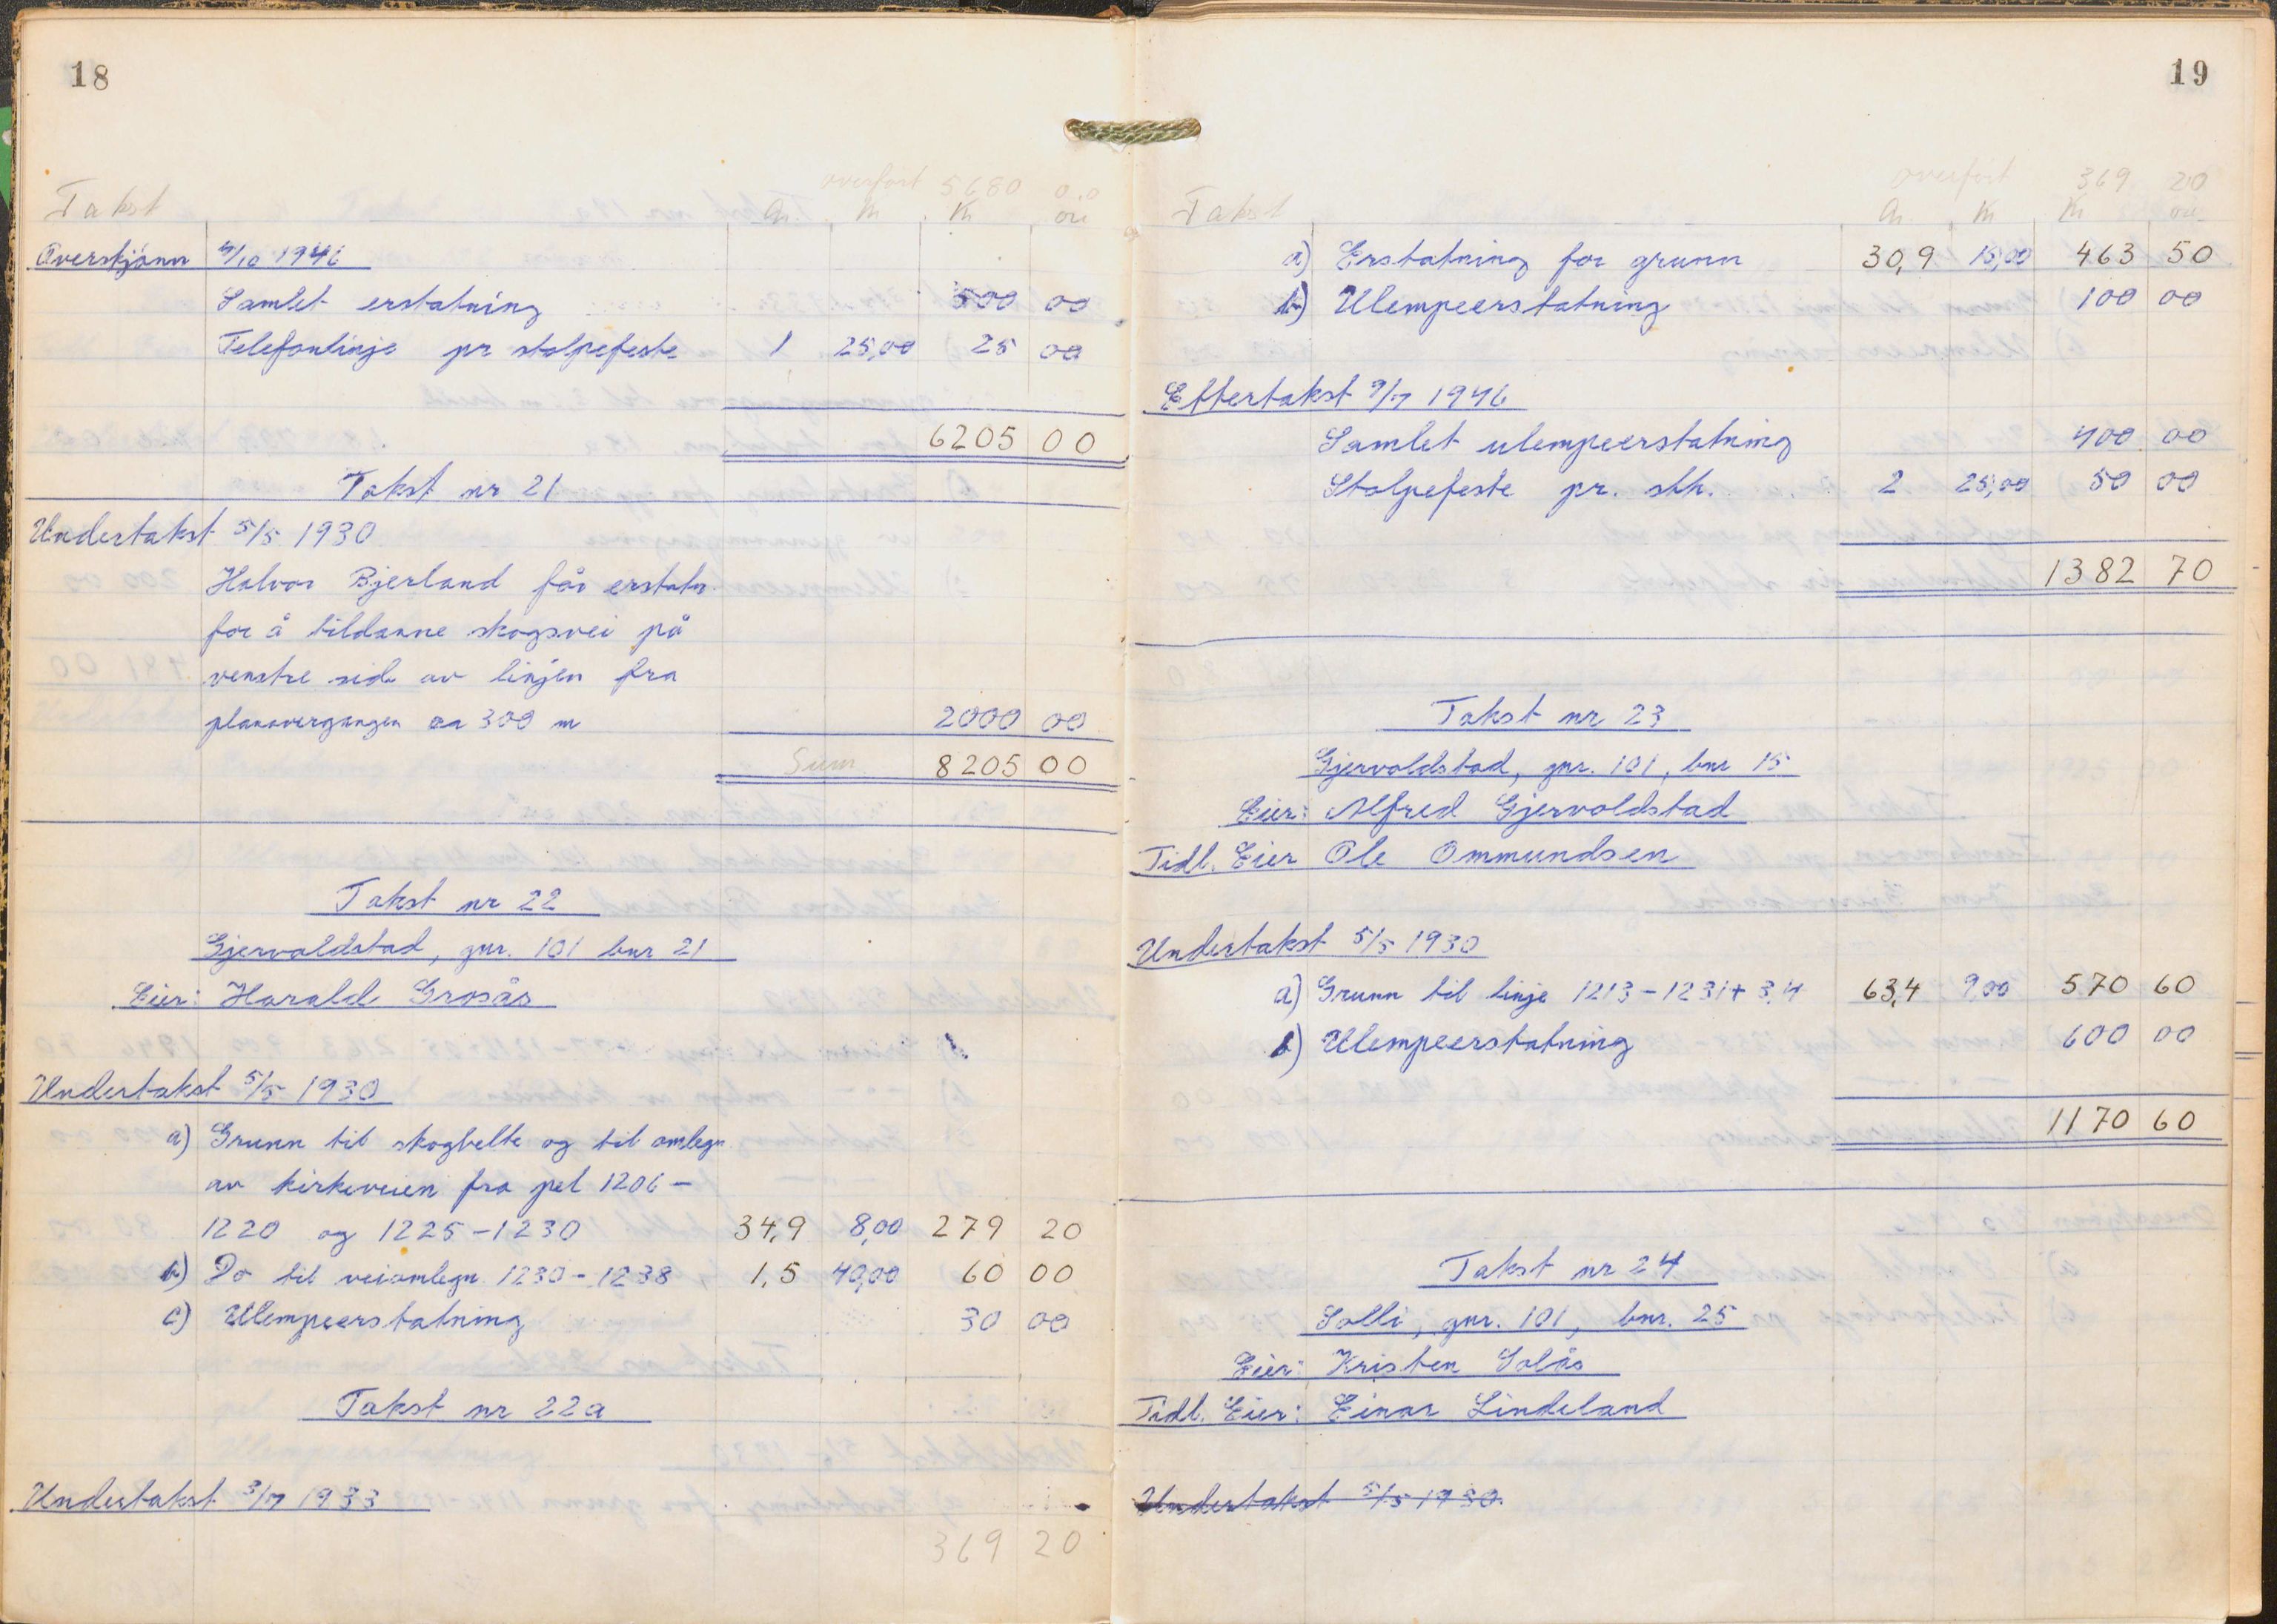 18
overført 5680 00
Takst Ar. Kr Kr öre
Overskjönn 4/10 1946
Samlet erstatning 500 00
Telefonlinje pr stolpefeste 1 25,00 25 00
6205 00
Takst nr 21
Undertakst 5/5 1930
Halvor Bjerland får erstatn.
for å tildanne skogsvei på
venstre side av linjen fra
planovergangen ca 300 m 2000 00
Sum 8205 00
Takst nr 22
Gjervoldstad, gnr. 101 bnr 21
Eier: Harald Grosås
Undertakst 5/5 1930
a) Grunn til skogbelte og til omlegn
av kirkeveien fra pel 1206 –
1220 og 1225 – 1230 34,9 8,00 279 20
b) Do til veiomlegn. 1230 – 1238 1,5 40,00 60 00
c) Ulempeerstatning 30 00
Takst nr 22a
Undertakst 3/7 1933
369 20
19
overført 369 20
Takst Ar. Kr Kr öre
a) Erstatning for grunn 30,9 15,00 463 50
b) Ulempeerstatning 100 00
Eftertakst 9/7 1946
Samlet ulempeerstatning 400 00
Stolpefeste pr. stk. 2 25,00 50 00
1382 70
Takst nr 23
Gjervoldstad, gnr. 101, bnr 15
Eier: Alfred Gjervoldstad
Tidl. Eier Ole Ommundsen
Undertakst 5/5 1930
a) Grunn til linje 1213 – 1231 + 3,4 63,4 9,00 570 60
b) Ulempeerstatning 600 00
1170 60
Takst nr 24
Solli, gnr. 101, bnr. 25
Eier: Kristen Solås
Tidl. Eier: Einar Lindeland
Undertakst 5/5 1930.